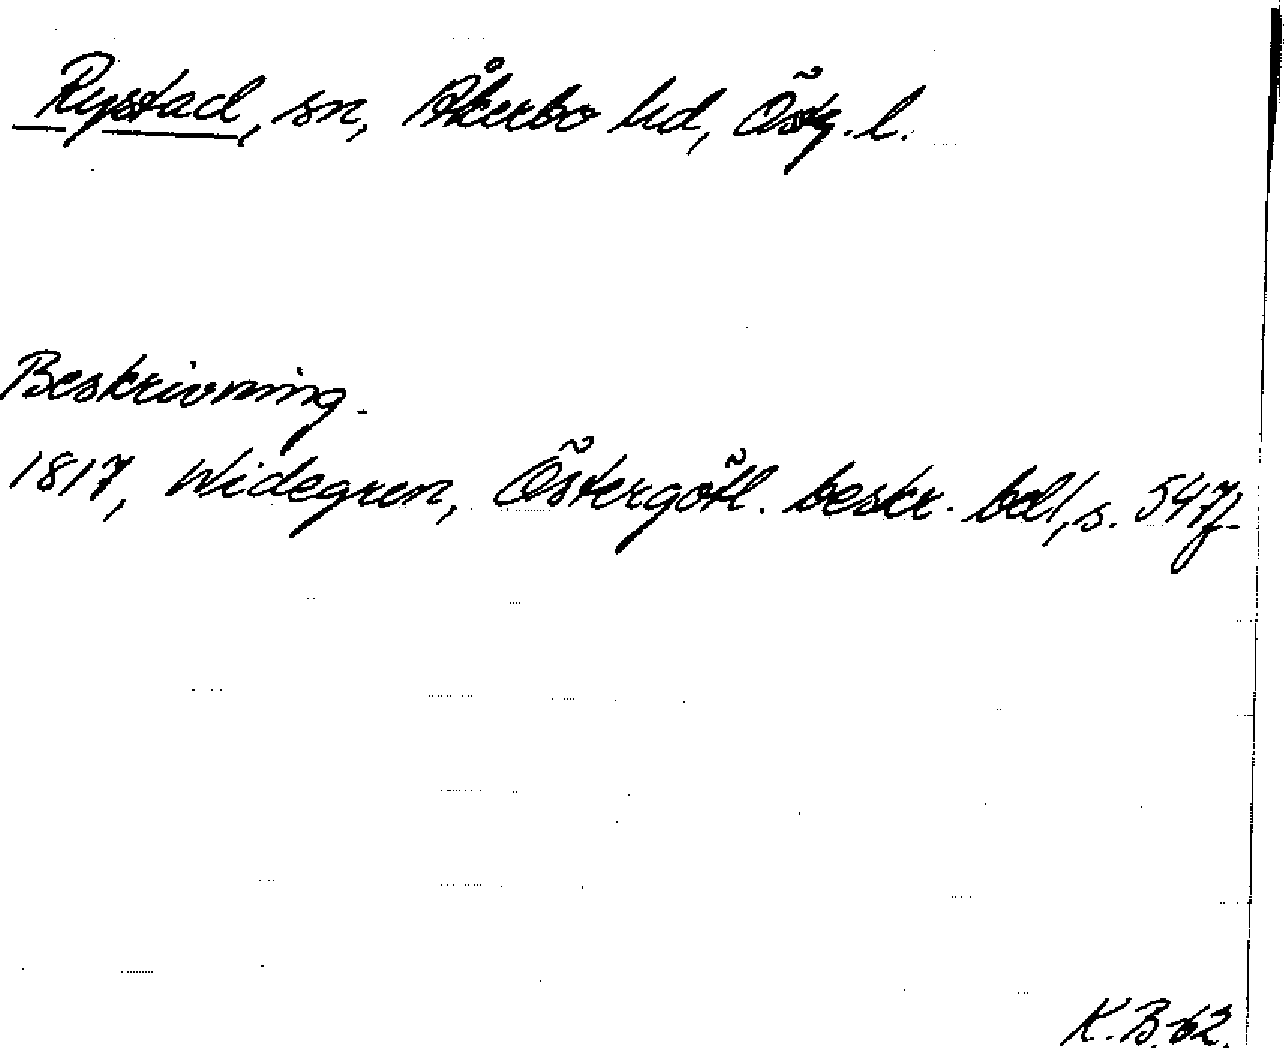 Rystad, sn, Åkerbo hd, Östg. l.
Beskrivning.
1817, Widegren, Östergötl. beskr. bd I, s. 547f.
K.B.-62.